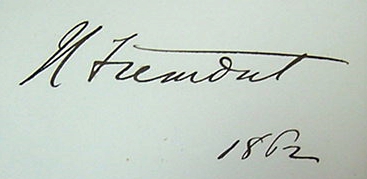 N Fremont
1862